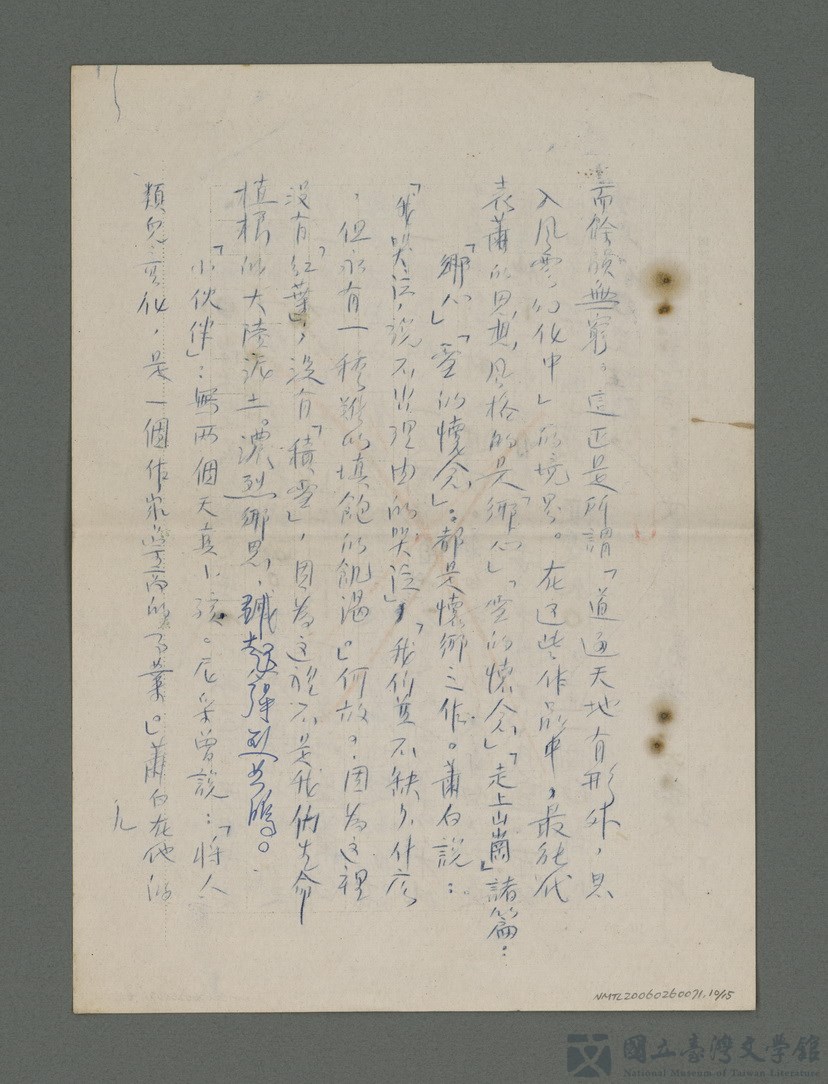 而餘韻無窮。這正是所謂「道通天地有形外，思
入風雲幻化中」的境界。在這些作品中，最能代
表蕭的思想，風格的是「鄉心」「雪的懷念」「走上山崗」諸篇：
「鄉心」「雪的懷念」：都是懷鄉之作。蕭白說：
「我哭泣，說不出理由的哭泣」，「我們並不缺少什麼
，但永有一種難以填飽的飢渴」何故。因為這裡
沒有「紅葉」，沒有「積雪」，因為這裡不是我們生命
植根的大陸泥土。濃烈鄉思，強烈共鳴。
「小伙伴」：寫兩個天真小孩。曾說：「將人
類兒童化，是一個作家崇高的事業」蕭白在他的
九
NMTL20060260071, 10/15
國立臺灣文學館
National Museum of Taiwan Literature